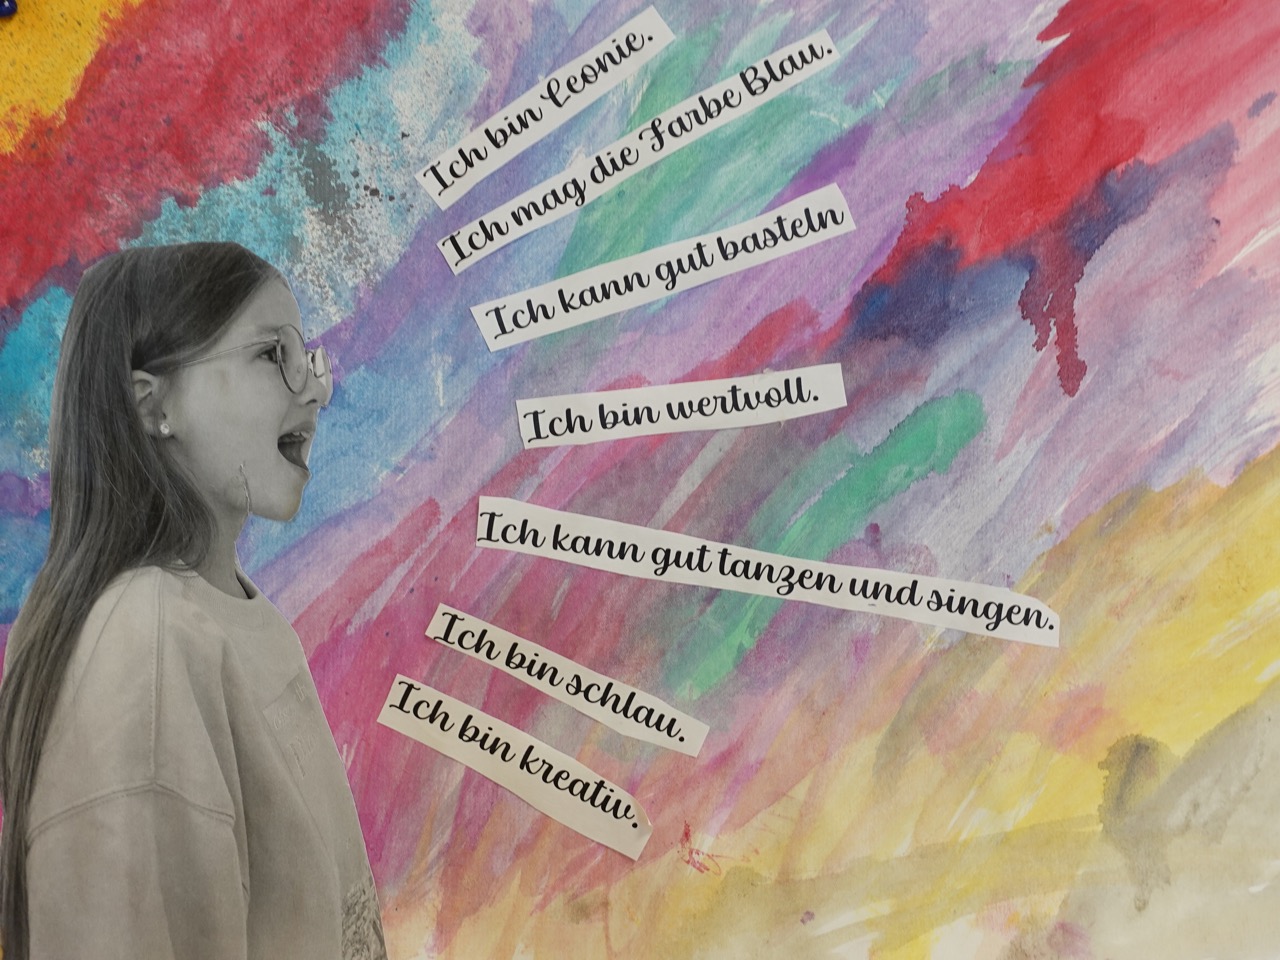 Ich bin Leonie.
Ich mag die Farbe Blau.
Ich kann gut basteln
Ich bin wertvoll.
Ich kann gut tanzen und singen.
Ich bin schlau.
Ich bin kreativ.